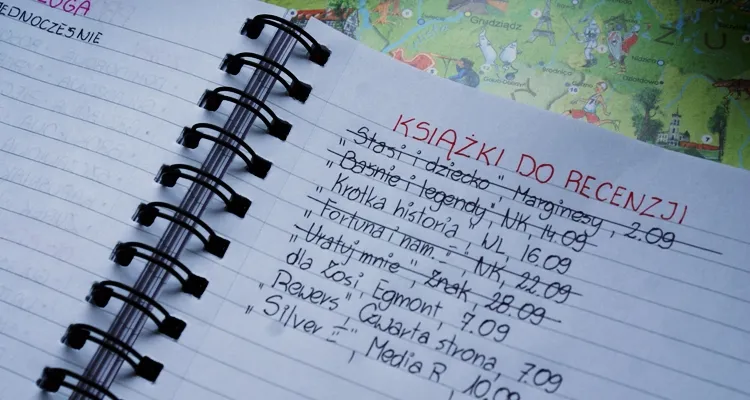 ŁUGA
JEDNOCZEŚNIE
Grudziądz
KSIĄŻKI DO RECENZJI
„Stasi i dziecko" Marginesy, 2.09
„Baśnie i legendy", NK, 14.09
„Krótka historia", WL, 16.09
„Fortuna i nam.=" NK, 22.09
„Uratuj mnie", Znak, 28.09
dla Zosi, Egmont, 7.09
„Rewers" Czwarta strona, 7.09
„Silver =", Media R, 10.09